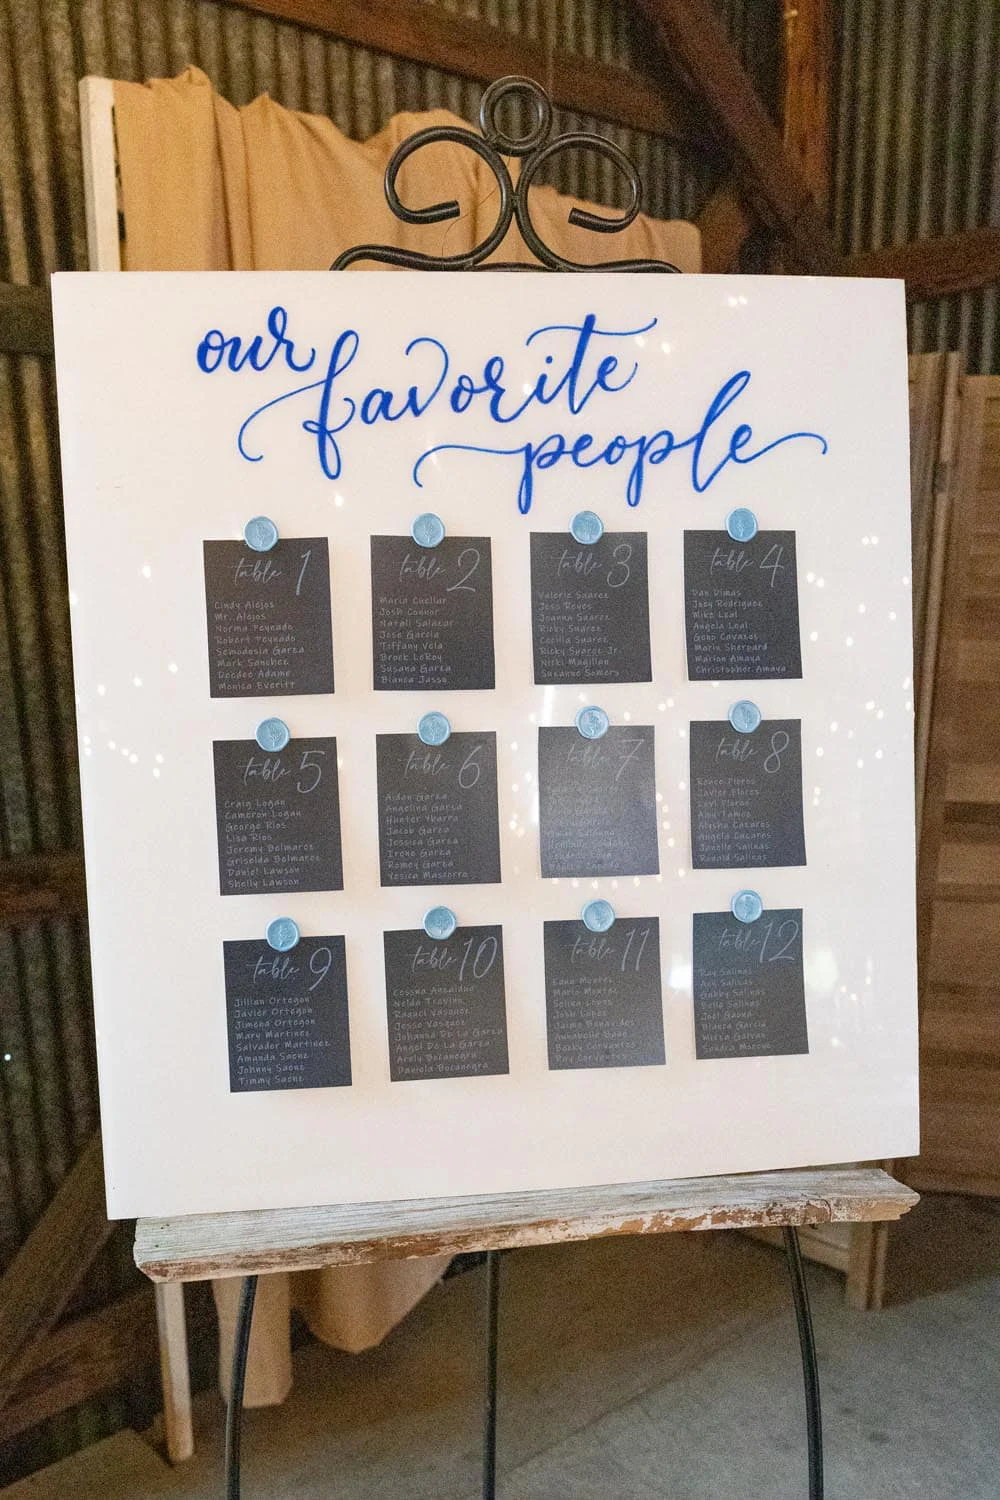 our
favorite
people
table 1
Cindy Alejos
Mr. Alejos
Norma Peynado
Robert Peynado
Semodosia Garza
Mark Sanchez
Deedee Adame
Monica Everitt
table 2
Maria Cuellar
Josh Connor
Natali Salazar
Jose Garcia
Tiffany Vela
Brock LeRoy
Susana Garza
Bianca Jasso
table 3
Valerie Suarez
Jess Reyes
Joanna Suarez
Ricky Suarez
Cecilia Suarez
Ricky Suarez Jr.
Nicki Magillan
Suzanne Somers
table 4
Dan Dimas
Joey Rodriguez
Mike Leal
Angela Leal
Geno Cavazos
Maria Shepnard
Marion Amaya
Christopher Amaya
table 5
Craig Logan
Cameron Logan
George Rios
Lisa Rios
Jeremy Belmarez
Griselda Belmarez
Daniel Lawson
Shelly Lawson
table 6
Aidan Garza
Angelina Garza
Hunter Ybarra
Jacob Garza
Jessica Garza
Irene Garza
Romey Garza
Yesica Mascorro
table 7
table 8
Renee Flores
Javier Flores
Levi Flores
Amy Tamez
Alysha Cazares
Angela Cazares
Janelle Salinas
Ronald Salinas
table 9
Jillian Ortegon
Javier Ortegon
Jimena Ortegon
Mary Martinez
Salvador Martinez
Amanda Saenz
Johnny Saenz
Timmy Saenz
table 10
Nelda Trevino
Raquel Vasquez
Jesse Vasquez
Johanna De La Garza
Angel De La Garza
Arely Bocanegra
Daniela Bocanegra
table 11
Edna Montez
Mario Montez
Selina Lopez
Josh Lopez
Jaime Benavides
Becky Cervantes
Ray Cervantes
table 12
Ray Salinas
Salinas
Gabby Salinas
Bella Salinas
Joel Gauna
Bianca Garcia
Galvan
Sandra